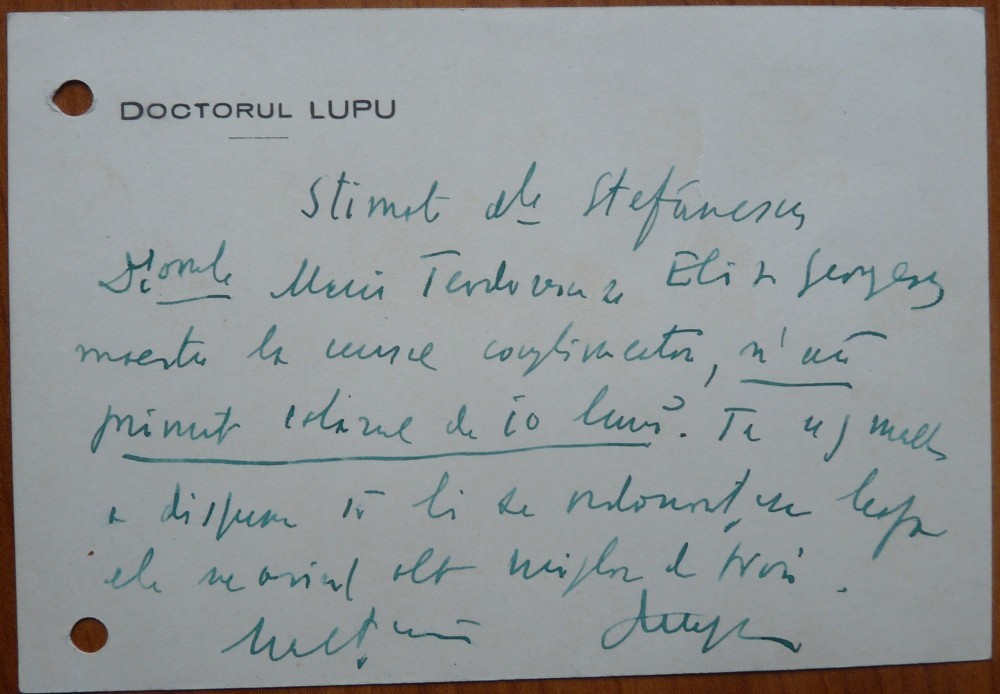 DOCTORUL LUPU
Stimate dle Ștefănescu
Maria Teodorescu și Eliza Georgescu
la cursul, n'au
primit salariul de 10 luni. Te rog mult
a dispune să li se ordonanțeze leafa
ele ne având alt mijloc de trai.
Mulțumiri Lupu